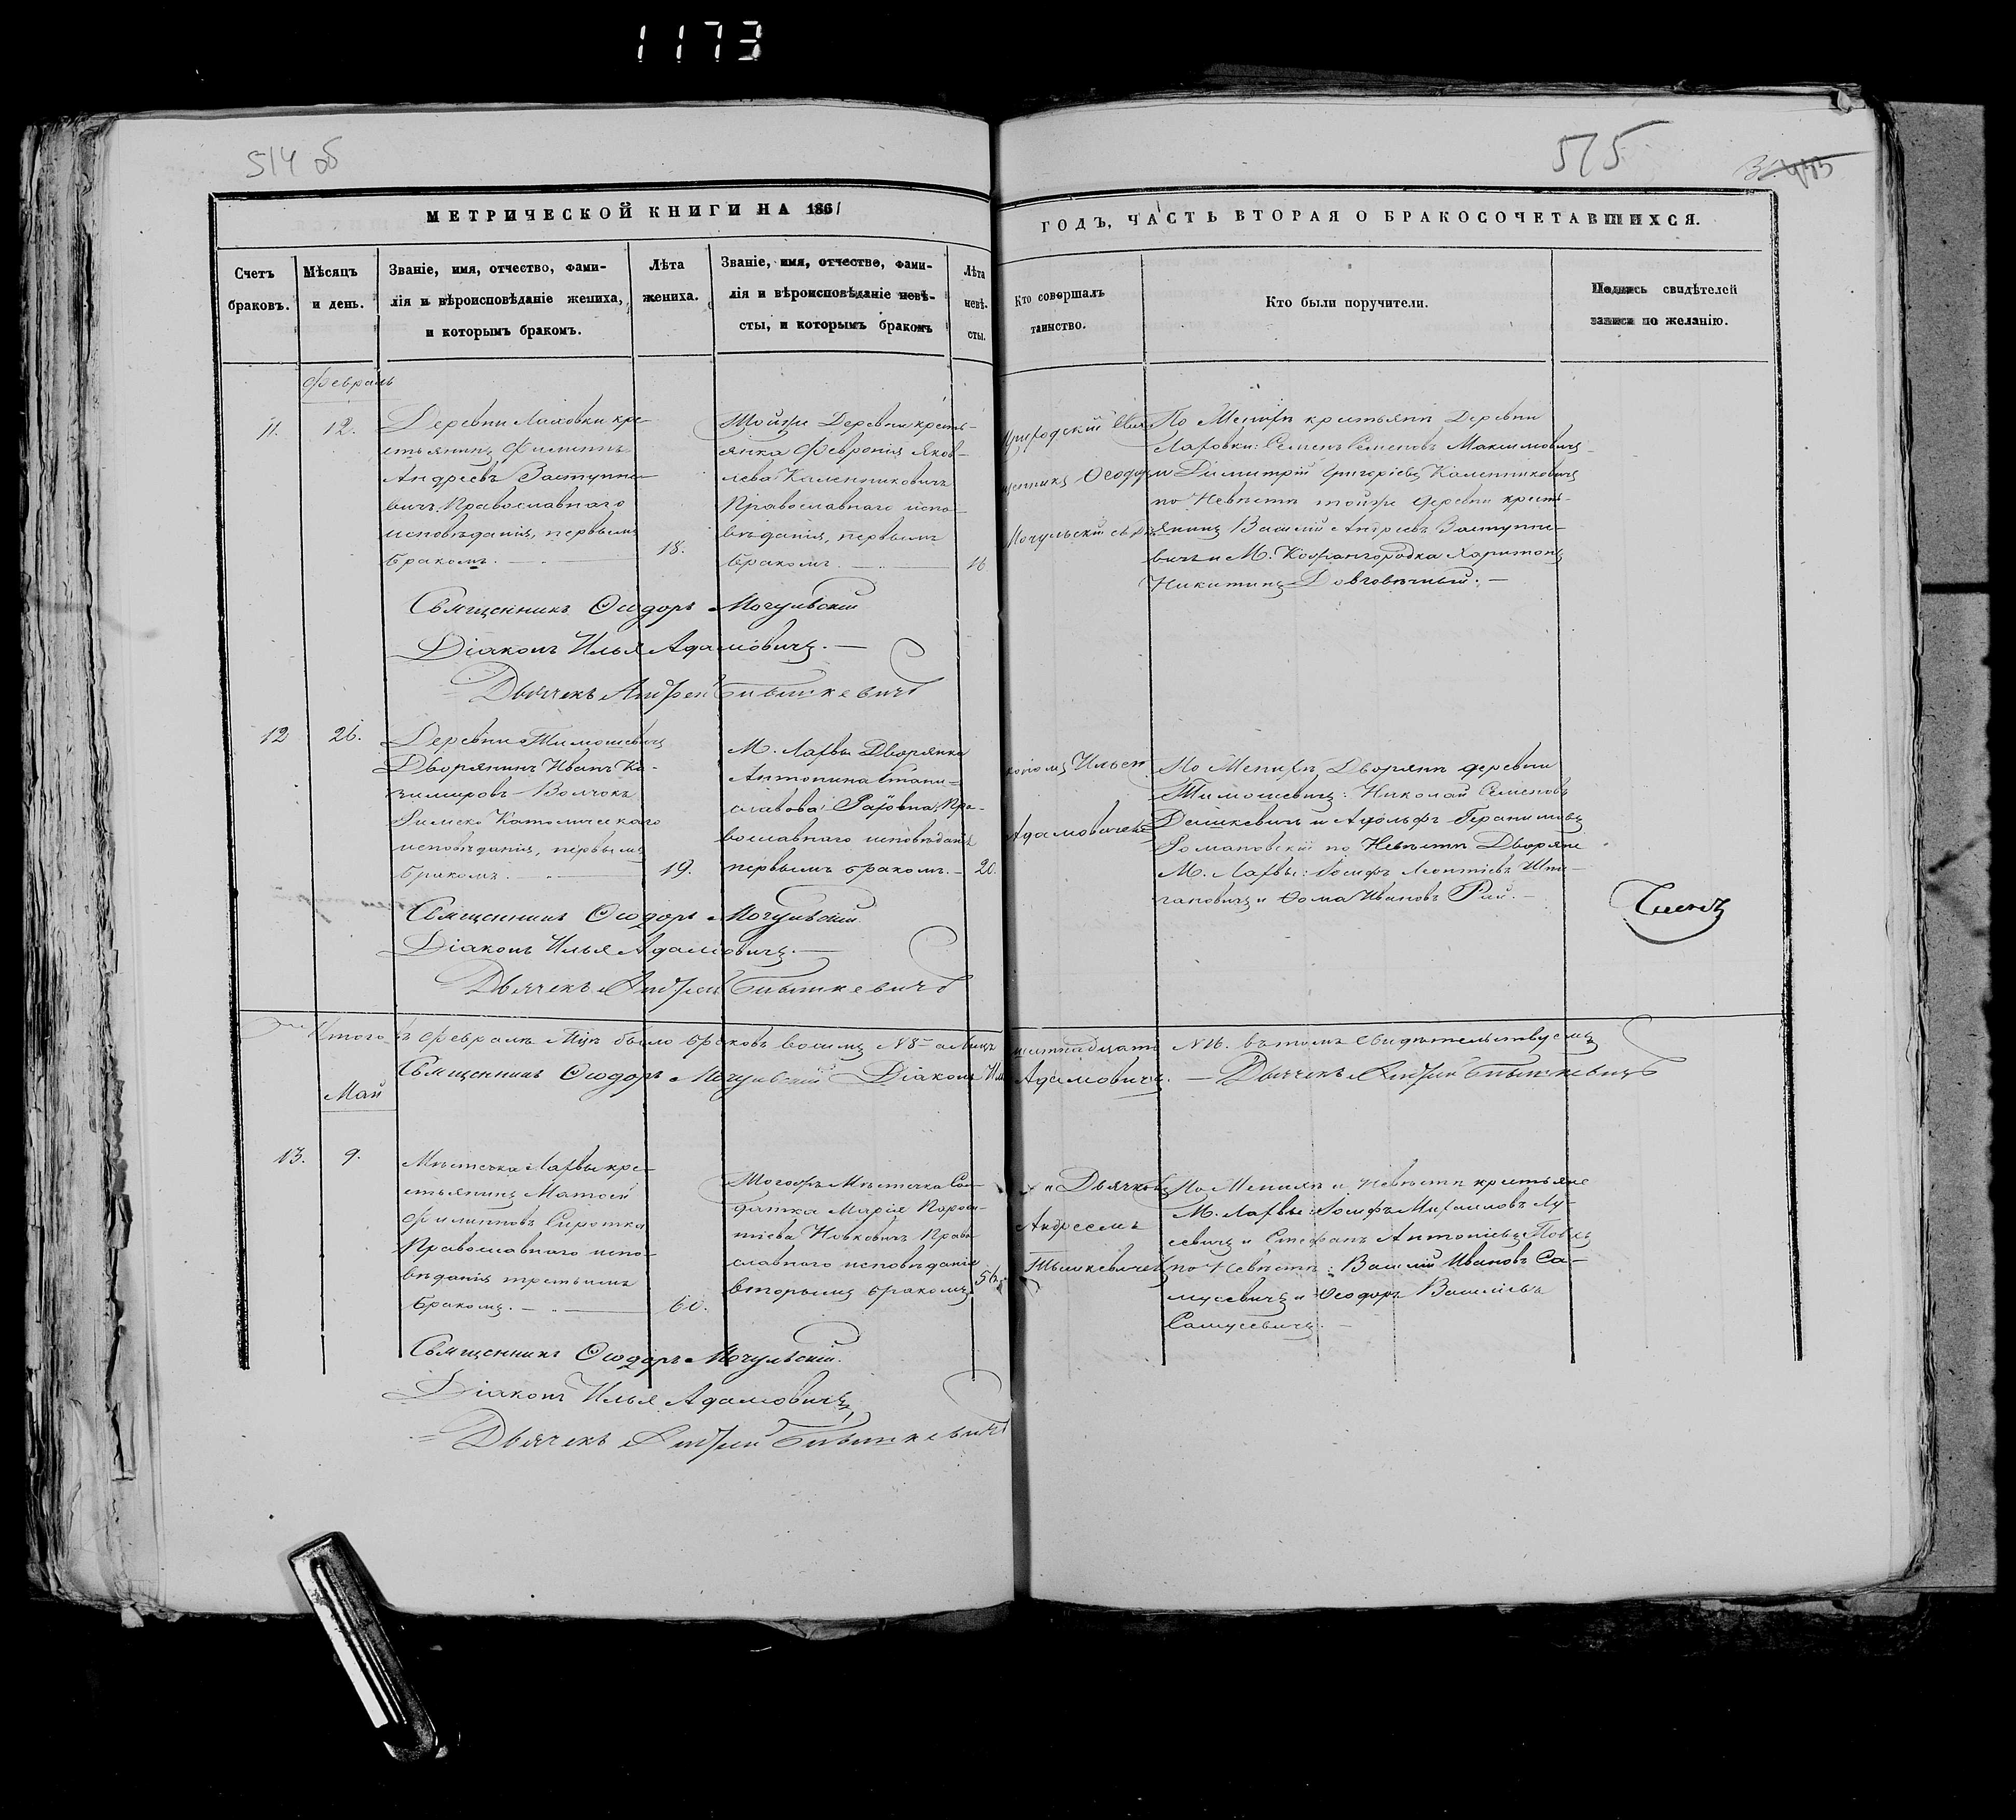 1173
514 об
515
МЕТРИЧЕСКОЙ КНИГИ НА 1861
ГОДЪ, ЧАСТЬ ВТОРАЯ О БРАКОСОЧЕТАВШИХСЯ.
Счетъ
браковъ.
Мѣсяцъ
и день.
Званіе, имя, отчество, фами-
лія и вѣроисповѣданіе жениха,
и которымъ бракомъ.
Лѣта
жениха.
Званіе, имя, отчество, фами-
лія и вѣроисповѣданіе невѣ-
сты, и которымъ бракомъ
Лѣта
невѣ-
сты.
Кто совершалъ
таинство.
Кто были поручители.
Подпись свидѣтелей
записи по желанію.
Февраль
11.
12.
Деревни Лаховки кре-
стьянинъ Филиппъ
Андреевъ Заступне-
вичъ Православнаго
исповѣданія, первымъ
бракомъ.
18.
Тойже Деревни кресть-
янка Февронія Яков-
лева Каленниковичъ
Православнаго испо-
вѣданія, первымъ
бракомъ.
16
Приходскій Свя-
щенникъ Ѳеодоръ
Мочульскій съ
По Женихѣ крестьяне Деревни
Лаховки: Семенъ Семеновъ Максимовичъ
и Димитрій Григоріевъ Каленниковичъ
по Невѣстѣ тойже деревни кресть-
янинъ Василій Андреевъ Заступне-
вичъ и М. Кожангородка Харитонъ
Никитинъ Довговѣчный.
Священникъ Ѳеодоръ Мочульскій
Діаконъ Илья Адамовичъ.
Дьячекъ Андрей Тышкевичъ
12
26.
Деревни Тимошевичъ
Дворянинъ Иванъ Ка-
зимировъ Волчокъ
Римско Католическаго
исповѣданія, первымъ
бракомъ.
19.
М. Лахвы Дворянка
Антонина Стани-
славова Раёвна, Пра-
вославнаго исповѣданія
первымъ бракомъ.
20.
кономъ Ильею
Адамовичемъ
По Женихѣ Дворяне деревни
Тимошевичъ: Николай Семеновъ
Дешкевичъ и Адольфъ Геранимовъ
Романовскій по Невѣстѣ Дворяне
М. Лахвы: Іосифъ Леонтіевъ
и Ѳома Ивановъ Рай.
Священникъ Ѳеодоръ Мочульскій.
Діаконъ Илья Адамовичъ.
Дьячекъ Андрей Тышкевичъ
Итого въ Февралѣ Мцѣ было браковъ восемь N 8 а лицъ
шестнадцать N 16. въ томъ свидѣтельствуемъ
Священникъ Ѳеодоръ Мочульскій Діаконъ Илья
Адамовичъ. Дьячекъ Андрей Тышкевичъ
Май
13.
9.
Мѣстечка Лахвы кре-
стьянинъ Матѳей
Филипповъ Сиротка
Православнаго испо-
вѣданія третьимъ
бракомъ.
60.
Тогожъ Мѣстечка Сол-
датка Марія
Новковичъ Право
славнаго исповѣданія
вторымъ бракомъ
56.
и Дьячкомъ
Андреемъ
Тышкевичемъ
По Женихѣ и Невѣстѣ крестьяне
М. Лахвы: Іосифъ Михаиловъ Лу-
севичъ и Стефанъ Антоніевъ
по Невѣстѣ: Василій Ивановъ Са-
мусевичъ и Ѳеодоръ Василіевъ
Самусевичъ.
Священникъ Ѳеодоръ Мочульскій.
Діаконъ Илья Адамовичъ,
Дьячекъ Андрей Тышкевичъ